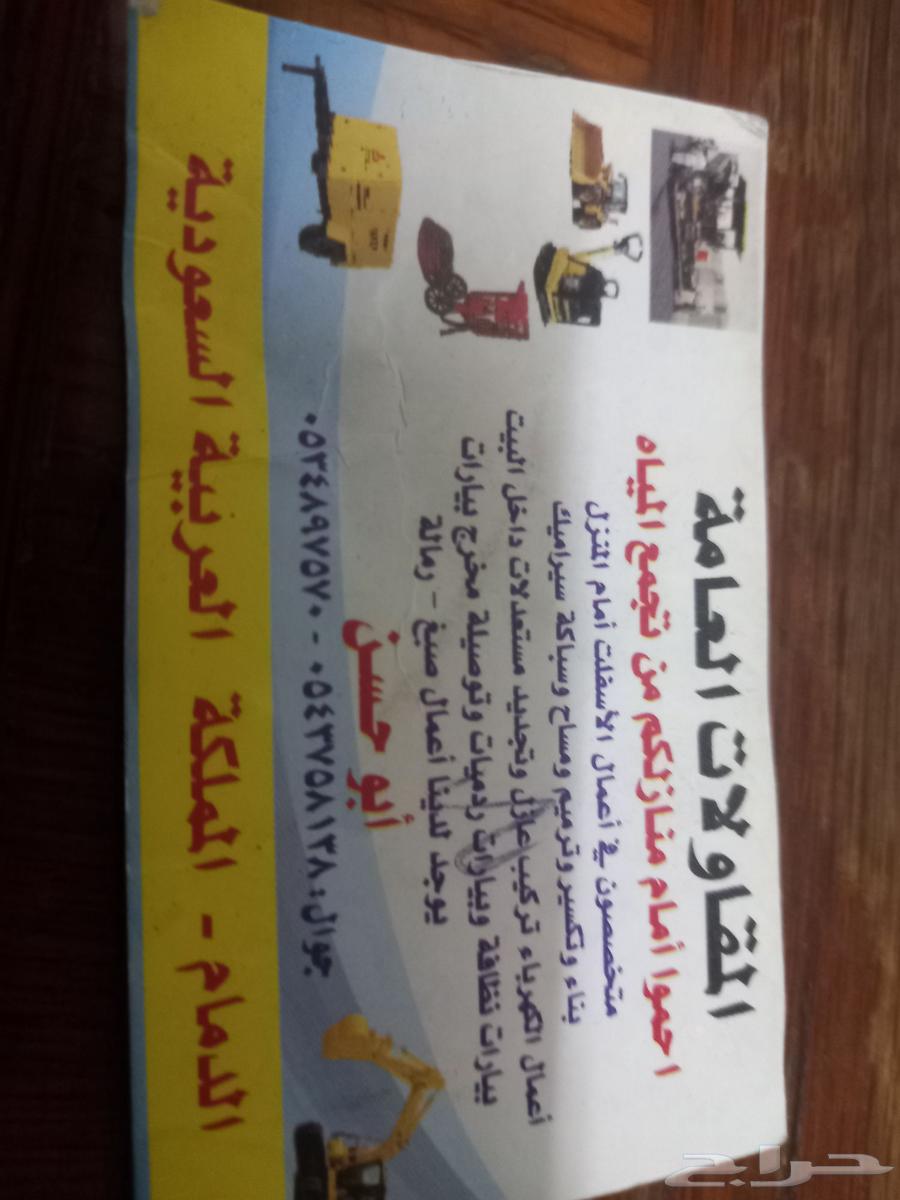 المقاولات العامة
احموا أمام منازلكم من تجمع المياه
متخصصون في أعمال الأسفلت أمام المنزل
بناء وتكسير وترميم ومساح وسباكة سيراميك
أعمال الكهرباء تركيب عازل وتجديد مستعدلات داخل البيت
بيارات نظافة وبيارات ردميات وتوصيلة مخرج بيارات
يوجد لدينا أعمال صبغ - رمالة
أبو حسن
جوال: ٠٥٤٣٧٥٨١٣٨ - ٠٥٣٤٨٩٧٥٧٠
الدمام - المملكة العربية السعودية
حراج